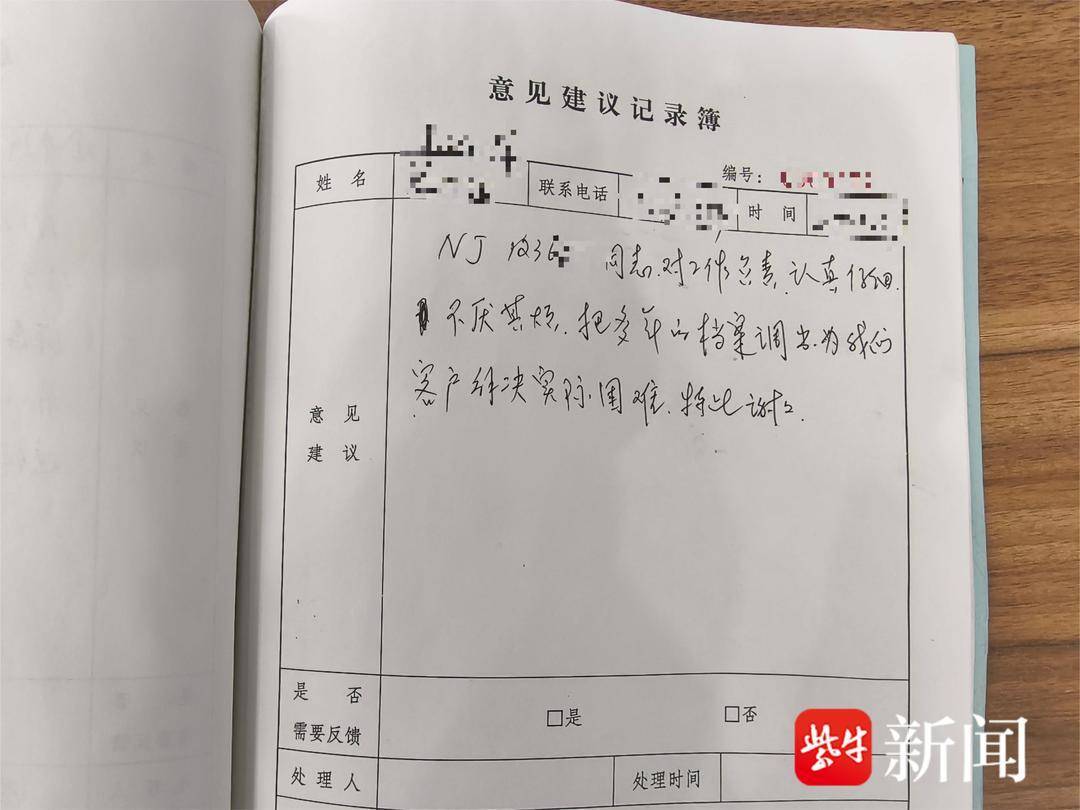 意见建议记录簿
编号：
姓名
联系电话
时间
NJ 同志.对工作负责.认真仔细.
不厌其烦.把多年的档案调出.为我们
客户解决实际困难.特此谢
意见
建议
是否
需要反馈
□是
□否
处理人
处理时间
紫牛新闻